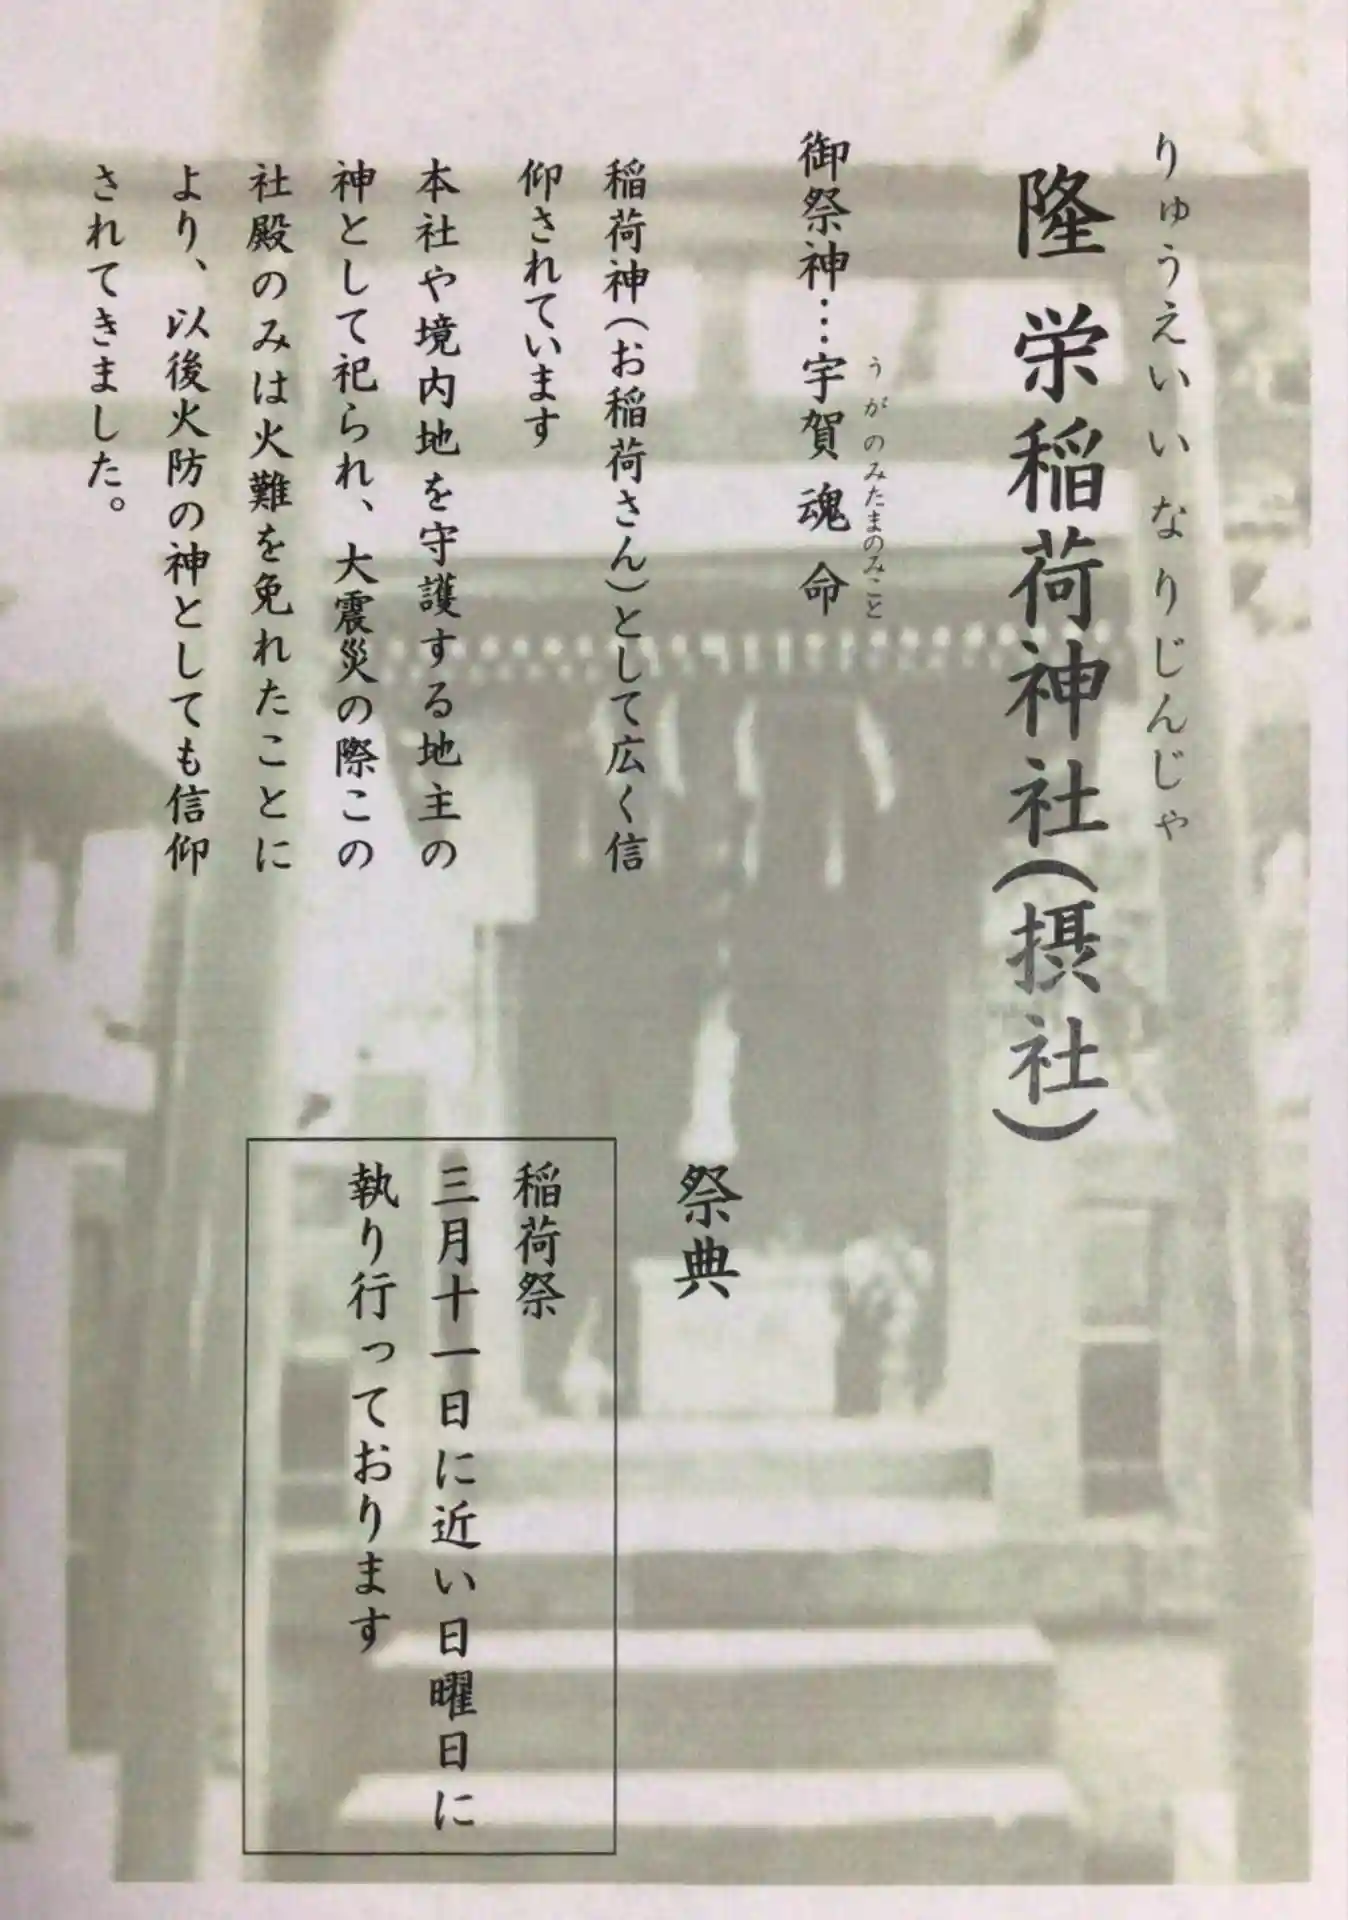 りゅうえいいなりじんじゃ
隆栄稲荷神社(摂社)
うがのみたまのみこと
御祭神…宇賀魂命
稲荷神(お稲荷さん)として広く信
仰されています
本社や境内地を守護する地主の
神として祀られ、大震災の際この
社殿のみは火難を免れたことに
より、以後火防の神としても信仰
されてきました。
祭典
稲荷祭
三月十一日に近い日曜日に
執り行っております